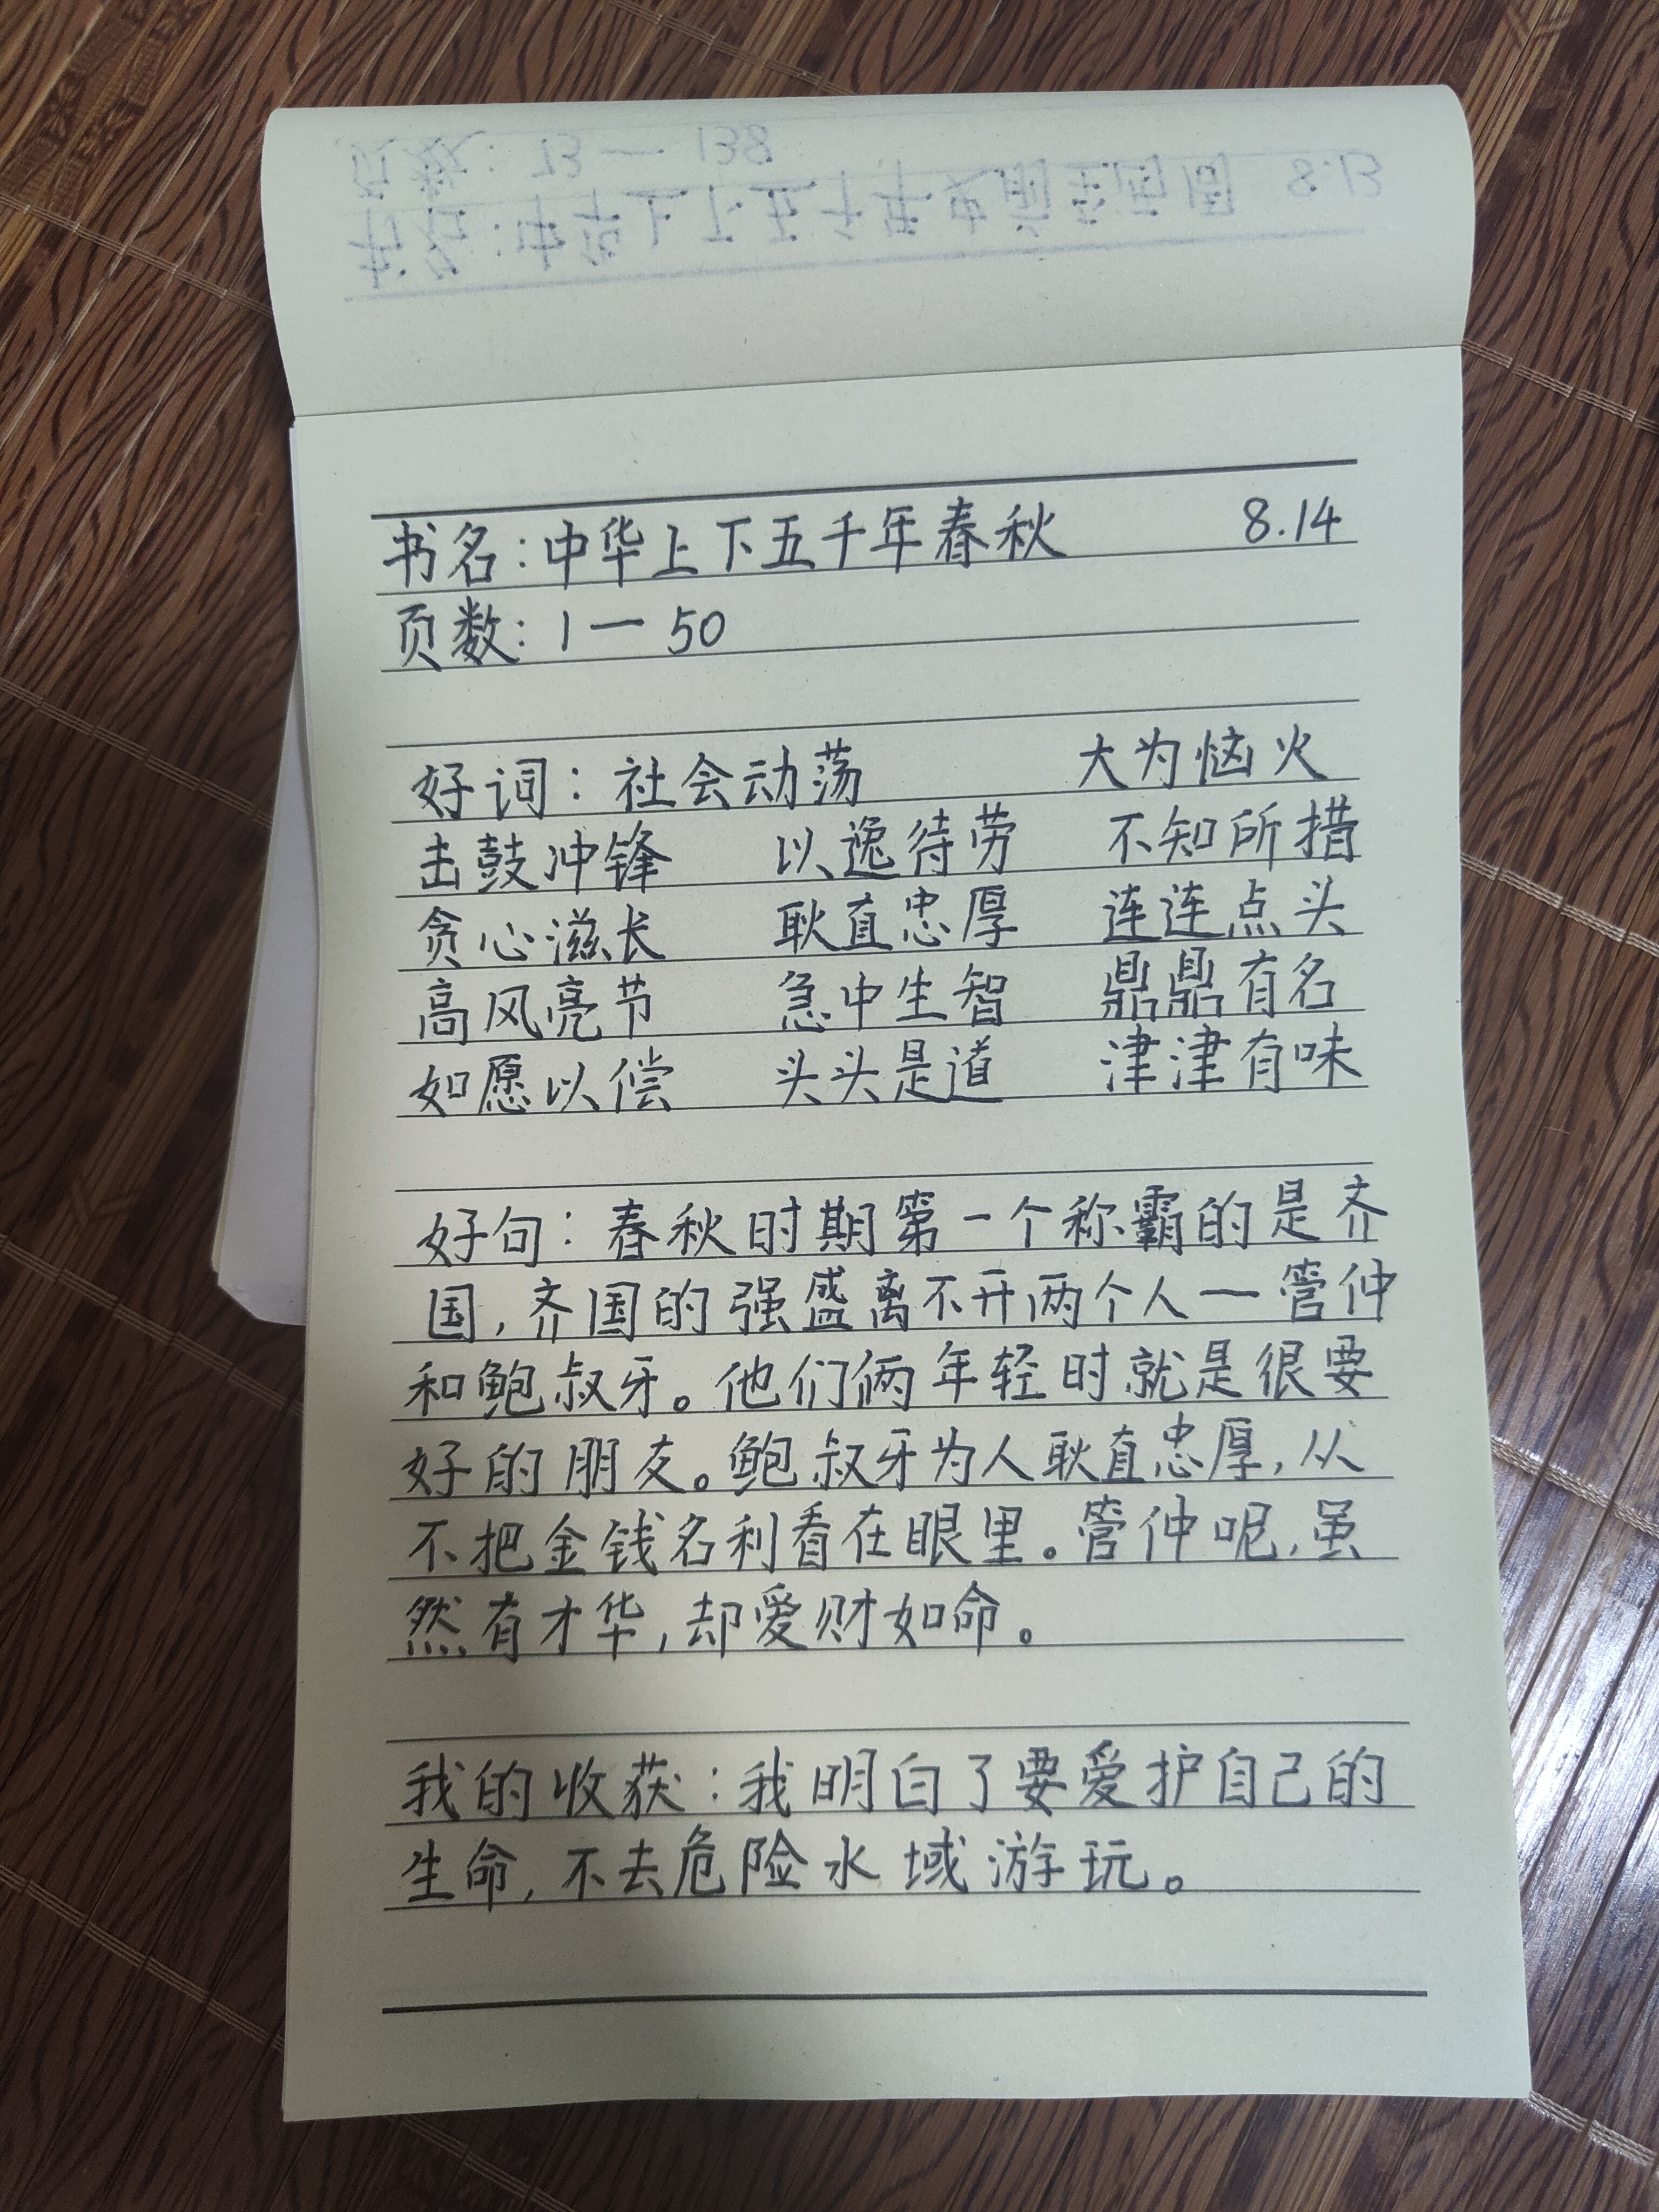 书名:中华上下五千年春秋 8.14
页数:1—50
好词:社会动荡 大为恼火
击鼓冲锋 以逸待劳 不知所措
贪心滋长 耿直忠厚 连连点头
高风亮节 急中生智 鼎鼎有名
如愿以偿 头头是道 津津有味
好句:春秋时期第一个称霸的是齐
国,齐国的强盛离不开两个人—管仲
和鲍叔牙。他们俩年轻时就是很要
好的朋友。鲍叔牙为人耿直忠厚,从
不把金钱名利看在眼里。管仲呢,虽
然有才华,却爱财如命。
我的收获:我明白了要爱护自己的
生命,不去危险水域游玩。